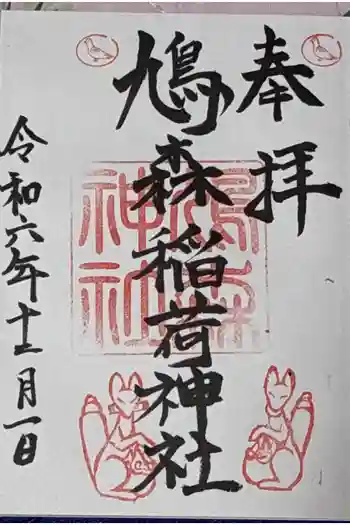 奉拝
鳩森稲荷神社
鳩森
神社
令和六年十一月一日